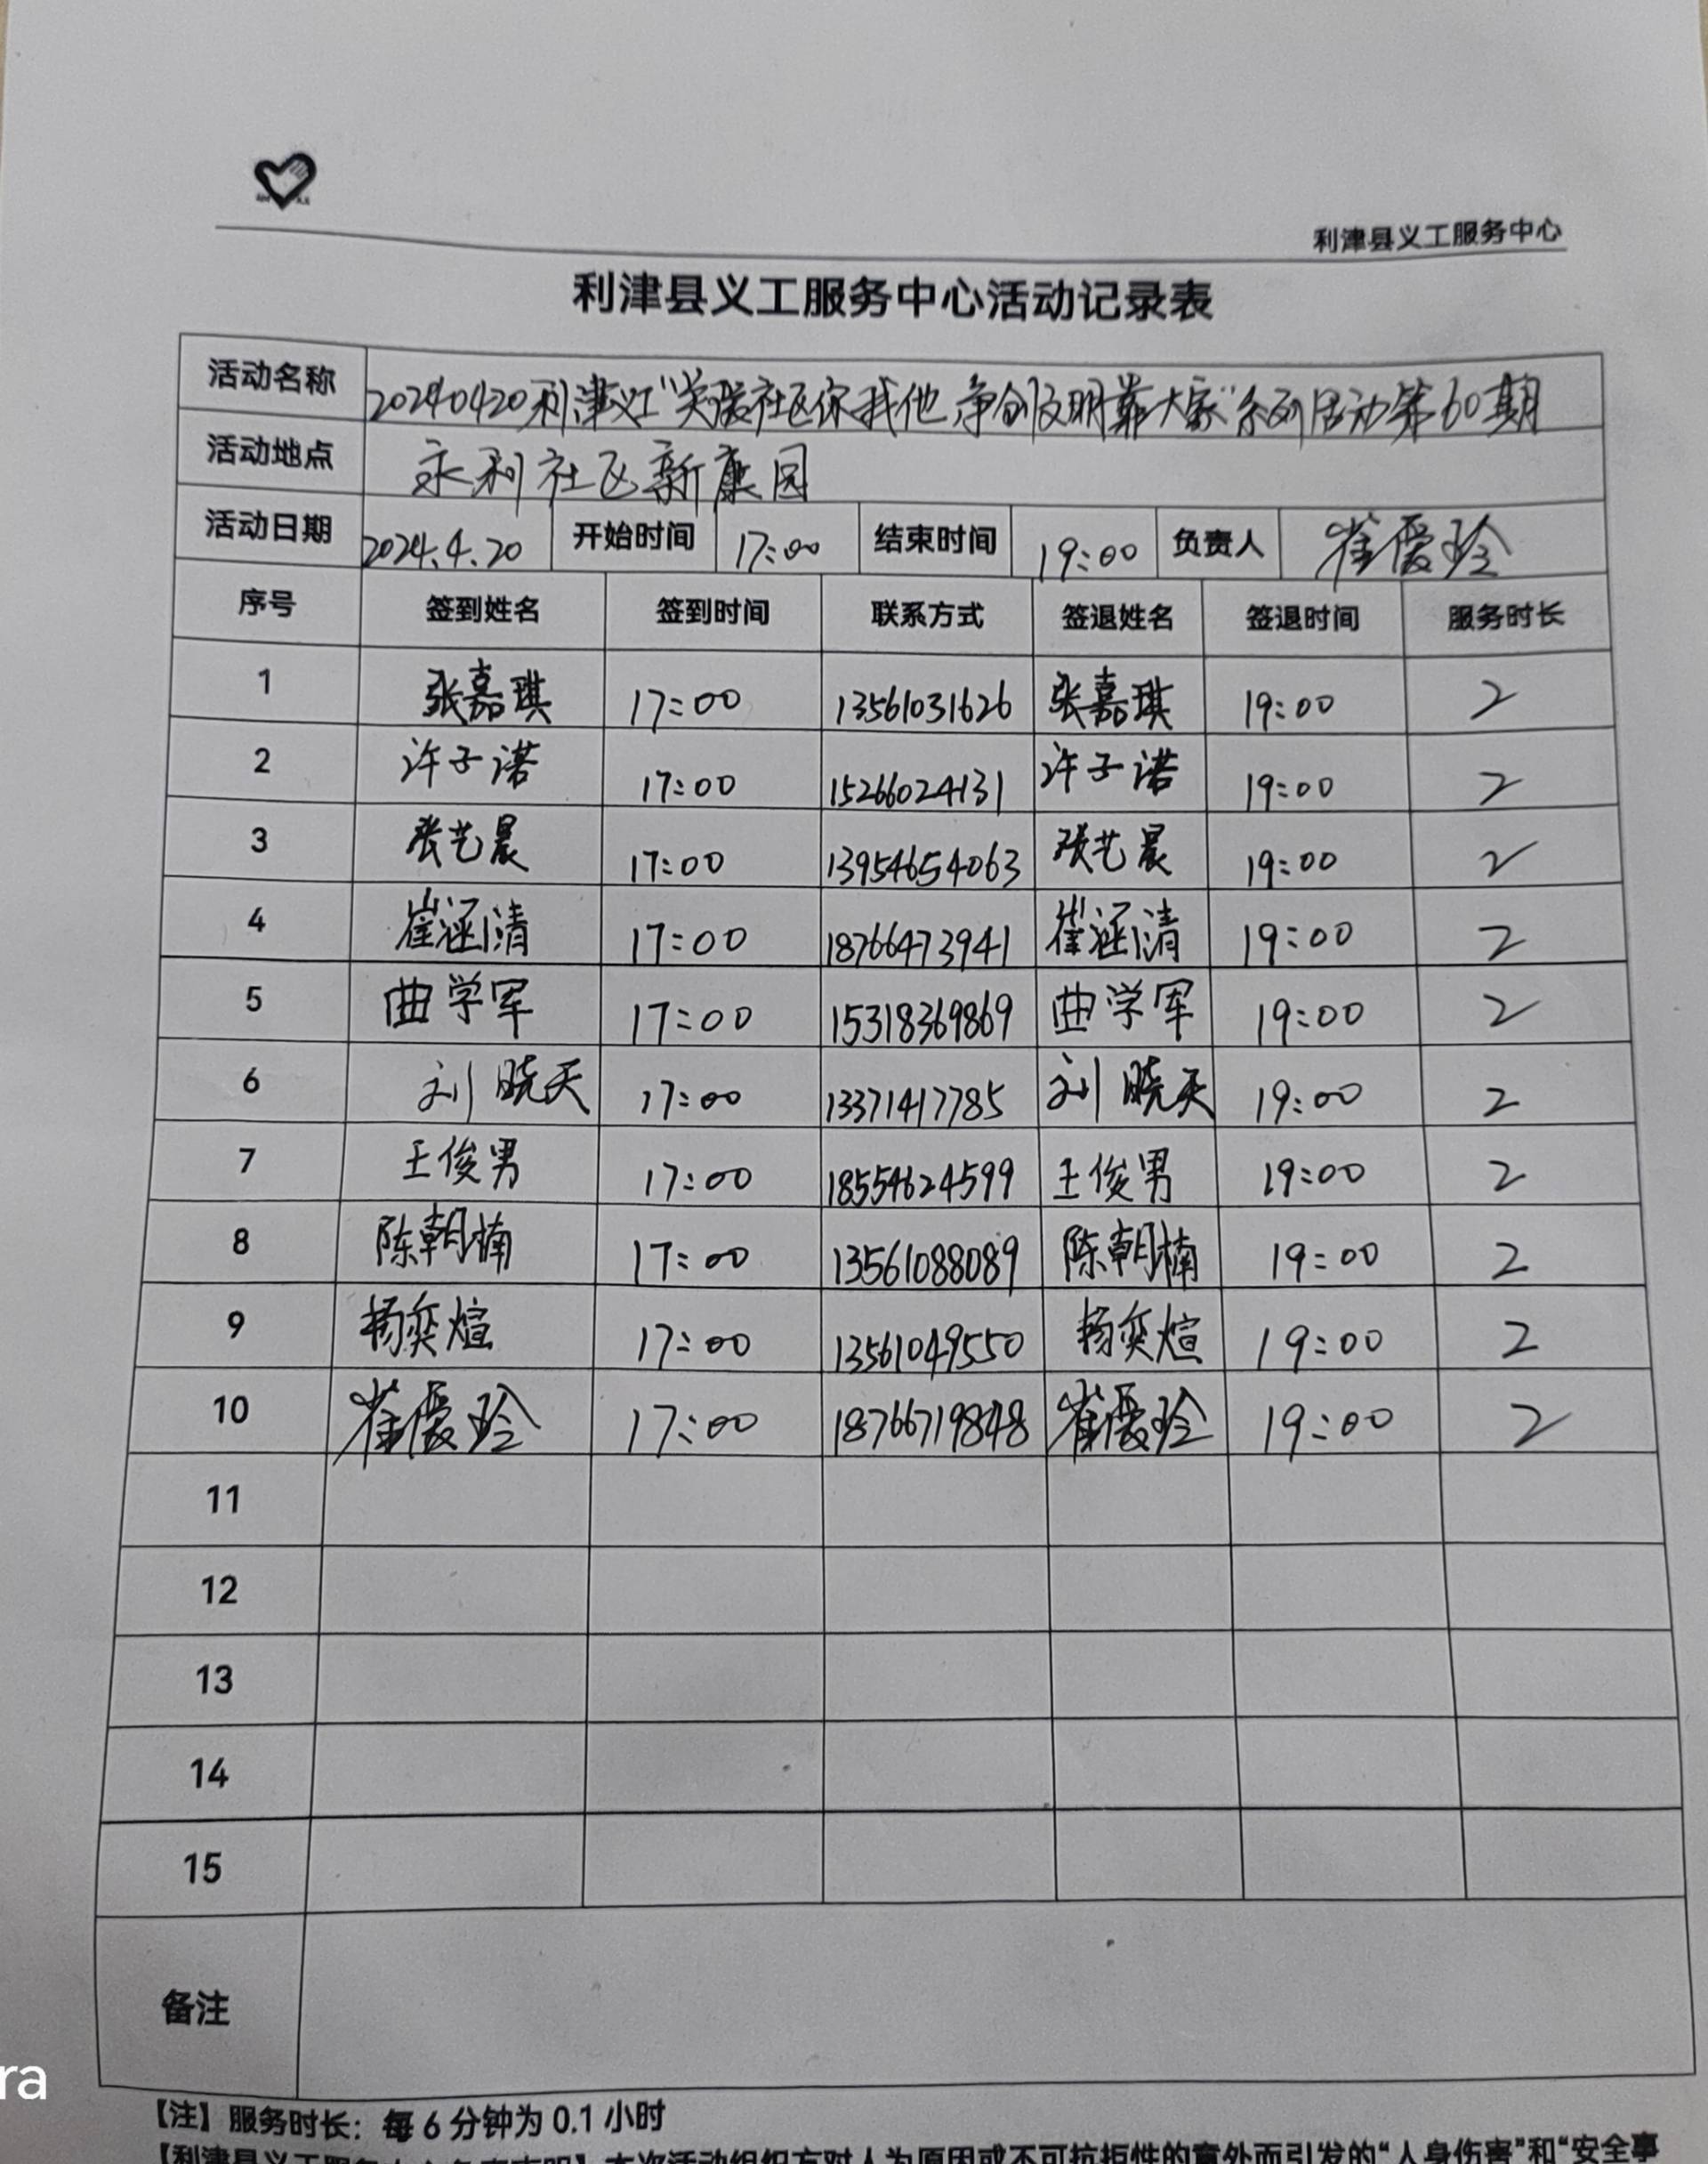 利津县义工服务中心
利津县义工服务中心活动记录表
活动名称 20240420利津义工“关爱社区你我他 争创文明靠大家”系列活动第60期
活动地点 永利社区新康园
活动日期 2024.4.20 开始时间 17:00 结束时间 19:00 负责人 崔爱玲
序号 签到姓名 签到时间 联系方式 签退姓名 签退时间 服务时长
1 张嘉琪 17:00 13561031626 张嘉琪 19:00 2
2 许子诺 17:00 15266024131 许子诺 19:00 2
3 张艺晨 17:00 13954654063 张艺晨 19:00 2
4 崔涵清 17:00 18766473941 崔涵清 19:00 2
5 曲学军 17:00 15318369869 曲学军 19:00 2
6 刘晓天 17:00 13371417785 刘晓天 19:00 2
7 王俊男 17:00 18554624599 王俊男 19:00 2
8 陈朝楠 17:00 13561088089 陈朝楠 19:00 2
9 杨奕煊 17:00 13561049550 杨奕煊 19:00 2
10 崔爱玲 17:00 18766719848 崔爱玲 19:00 2
11
12
13
14
15
备注
ra
【注】服务时长：每6分钟为0.1小时
本次活动组织方对人为原因或不可抗拒性的意外而引发的“人身伤害”和“安全事